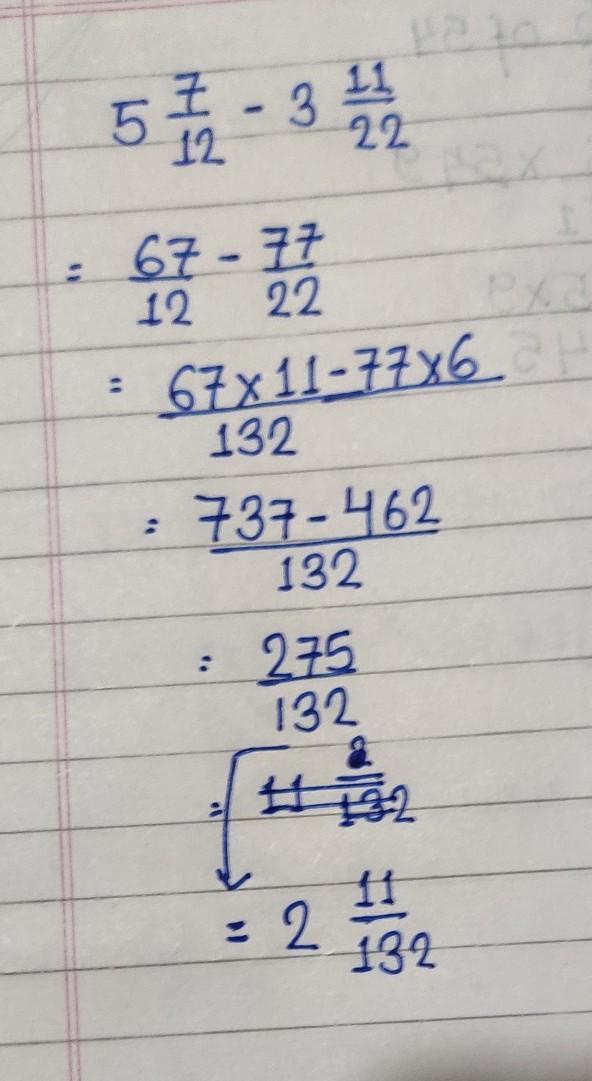 5 7/12 - 3 11/22
= 67/12 - 77/22
= 67x11-77x6/132
= 737-462/132
= 275/132
= 11 2/132
= 2 11/132